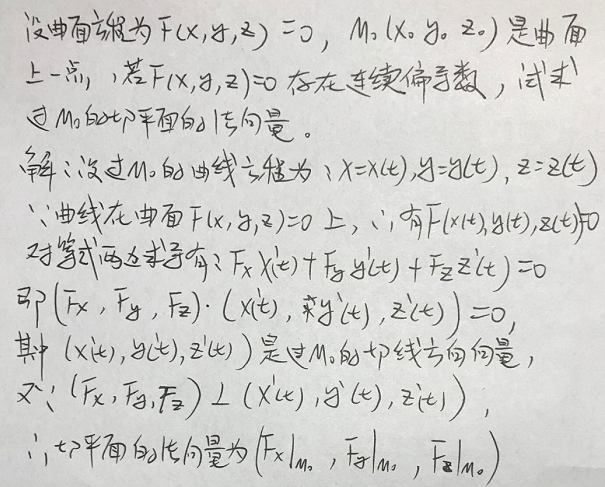 设曲面方程为F(x,y,z)=0, M₀(x₀ y₀ z₀)是曲面
上一点,若F(x,y,z)=0存在连续偏导数,试求
过M₀的切平面的法向量。
解:设过M₀的曲线方程为:x=x(t),y=y(t),z=z(t)
∵曲线在曲面F(x,y,z)=0上,∴有F(x(t),y(t),z(t))=0
对等式两边求导有:Fx x'(t)+Fy y'(t)+Fz z'(t)=0
即(Fx,Fy,Fz)·(x'(t),y'(t),z'(t))=0,
其中(x'(t),y'(t),z'(t))是过M₀的切线方向向量,
又∵(Fx,Fy,Fz)⊥(x'(t),y'(t),z'(t)),
∴切平面的法向量为(Fx|M₀,Fy|M₀,Fz|M₀)